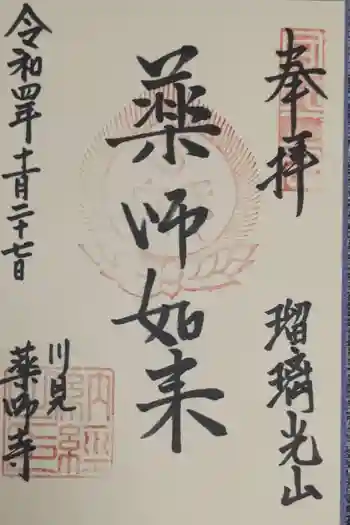 奉拝
瑠璃光山
薬師如来
川見
薬師寺
令和四年十一月二十七日
納経